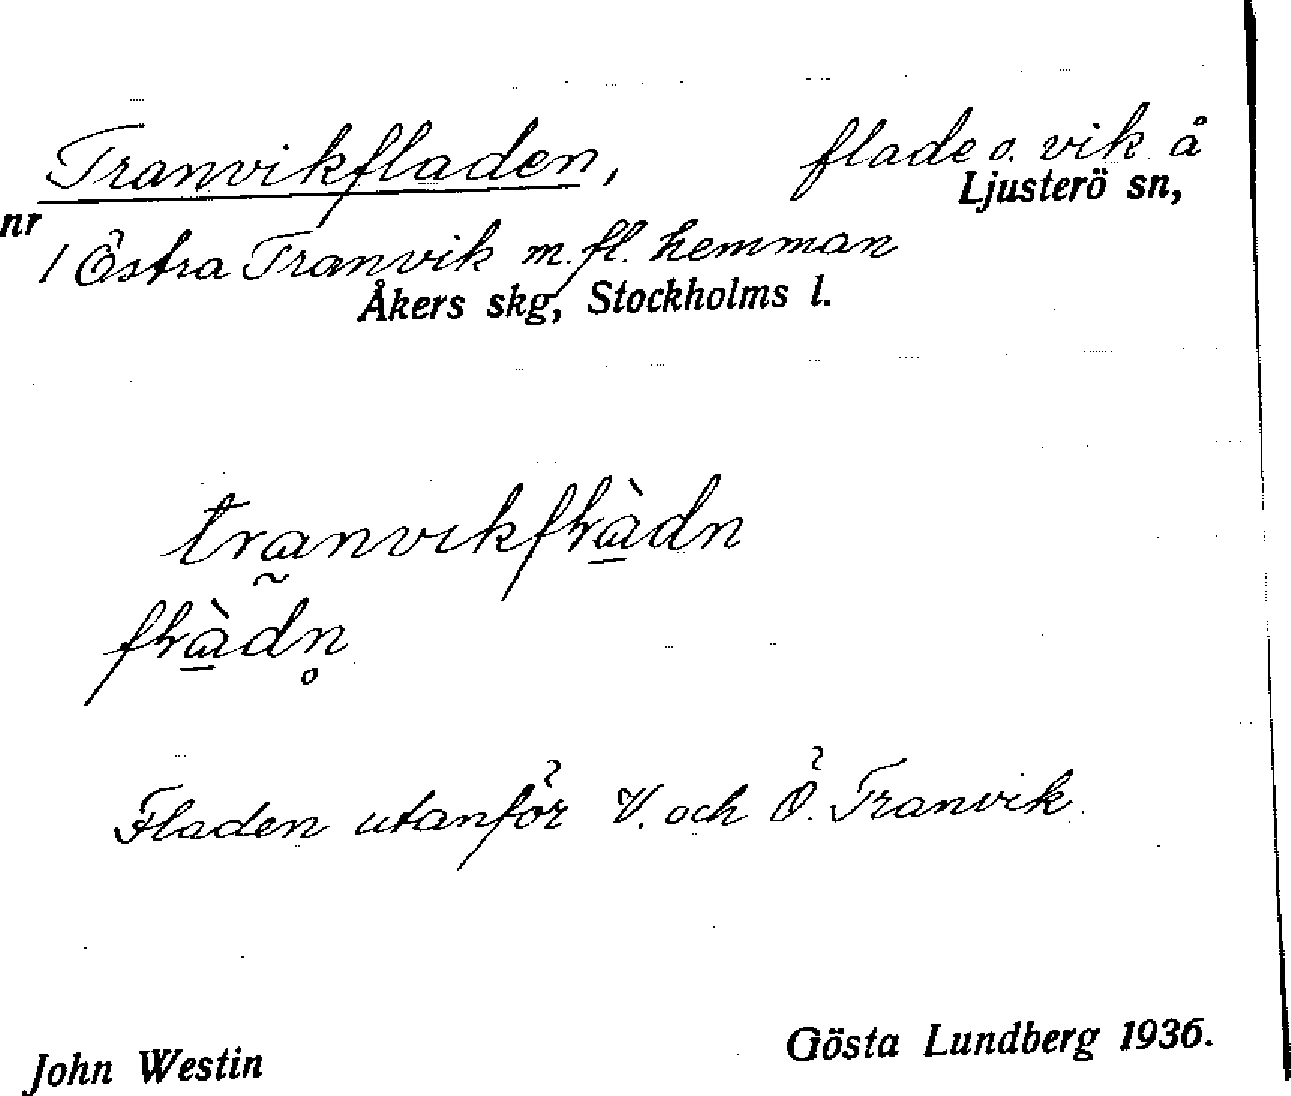 Tranvikfladen, flade o. vik å
Ljusterö sn,
nr 1 Östra Tranvik m. fl. hemman
Åkers skg, Stockholms l.
Fladen utanför V. och Ö. Tranvik.
John Westin Gösta Lundberg 1936.